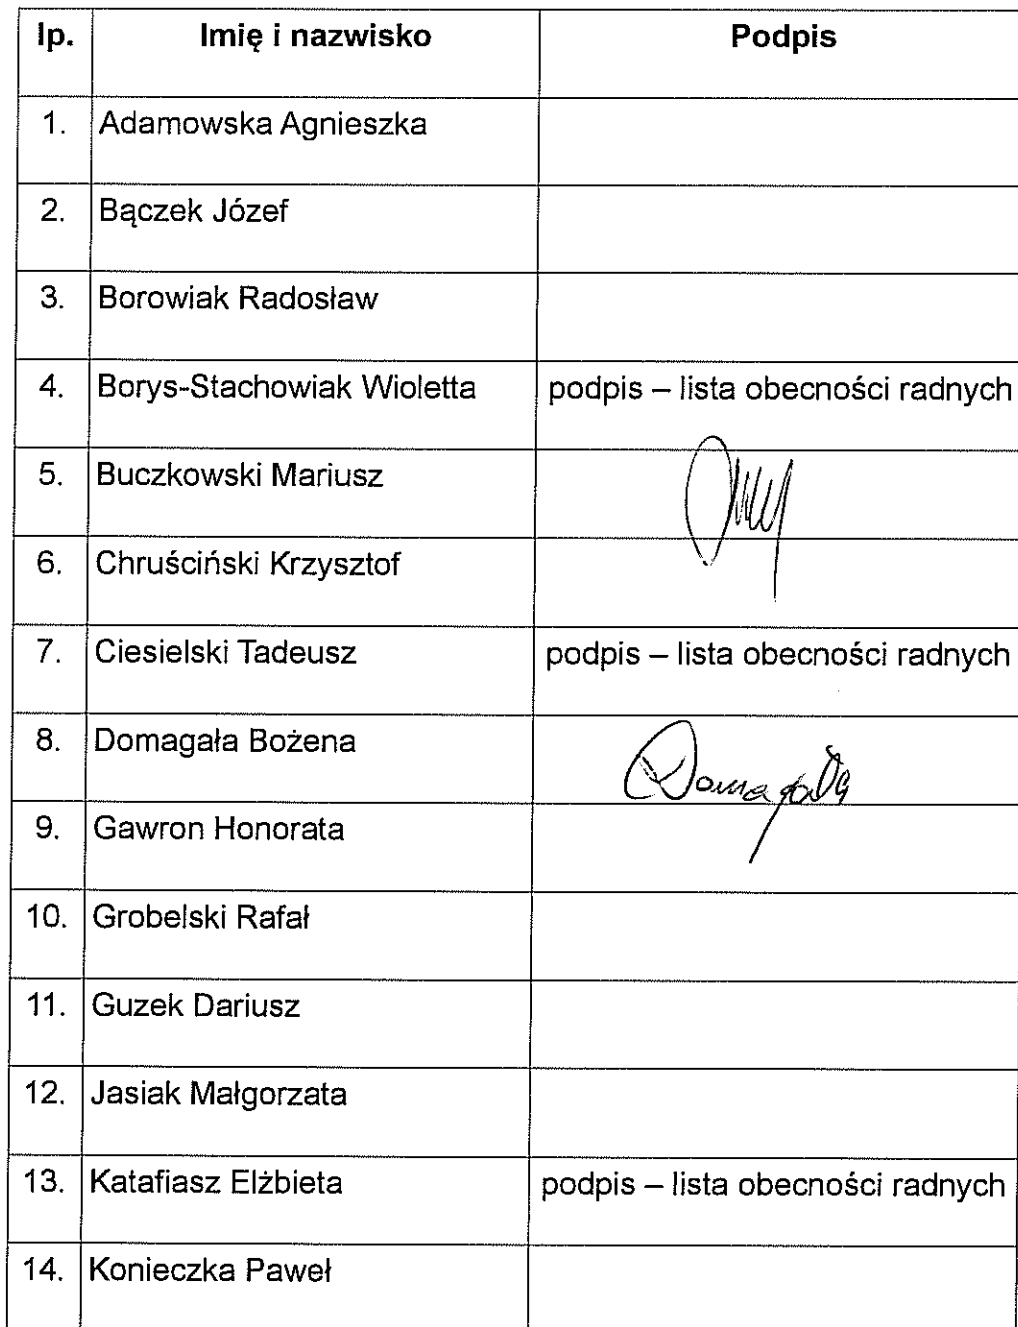 lp. Imię i nazwisko Podpis
1. Adamowska Agnieszka
2. Bączek Józef
3. Borowiak Radosław
4. Borys-Stachowiak Wioletta podpis – lista obecności radnych
5. Buczkowski Mariusz
6. Chruściński Krzysztof
7. Ciesielski Tadeusz podpis – lista obecności radnych
8. Domagała Bożena Domagała
9. Gawron Honorata
10. Grobelski Rafał
11. Guzek Dariusz
12. Jasiak Małgorzata
13. Katafiasz Elżbieta podpis – lista obecności radnych
14. Konieczka Paweł